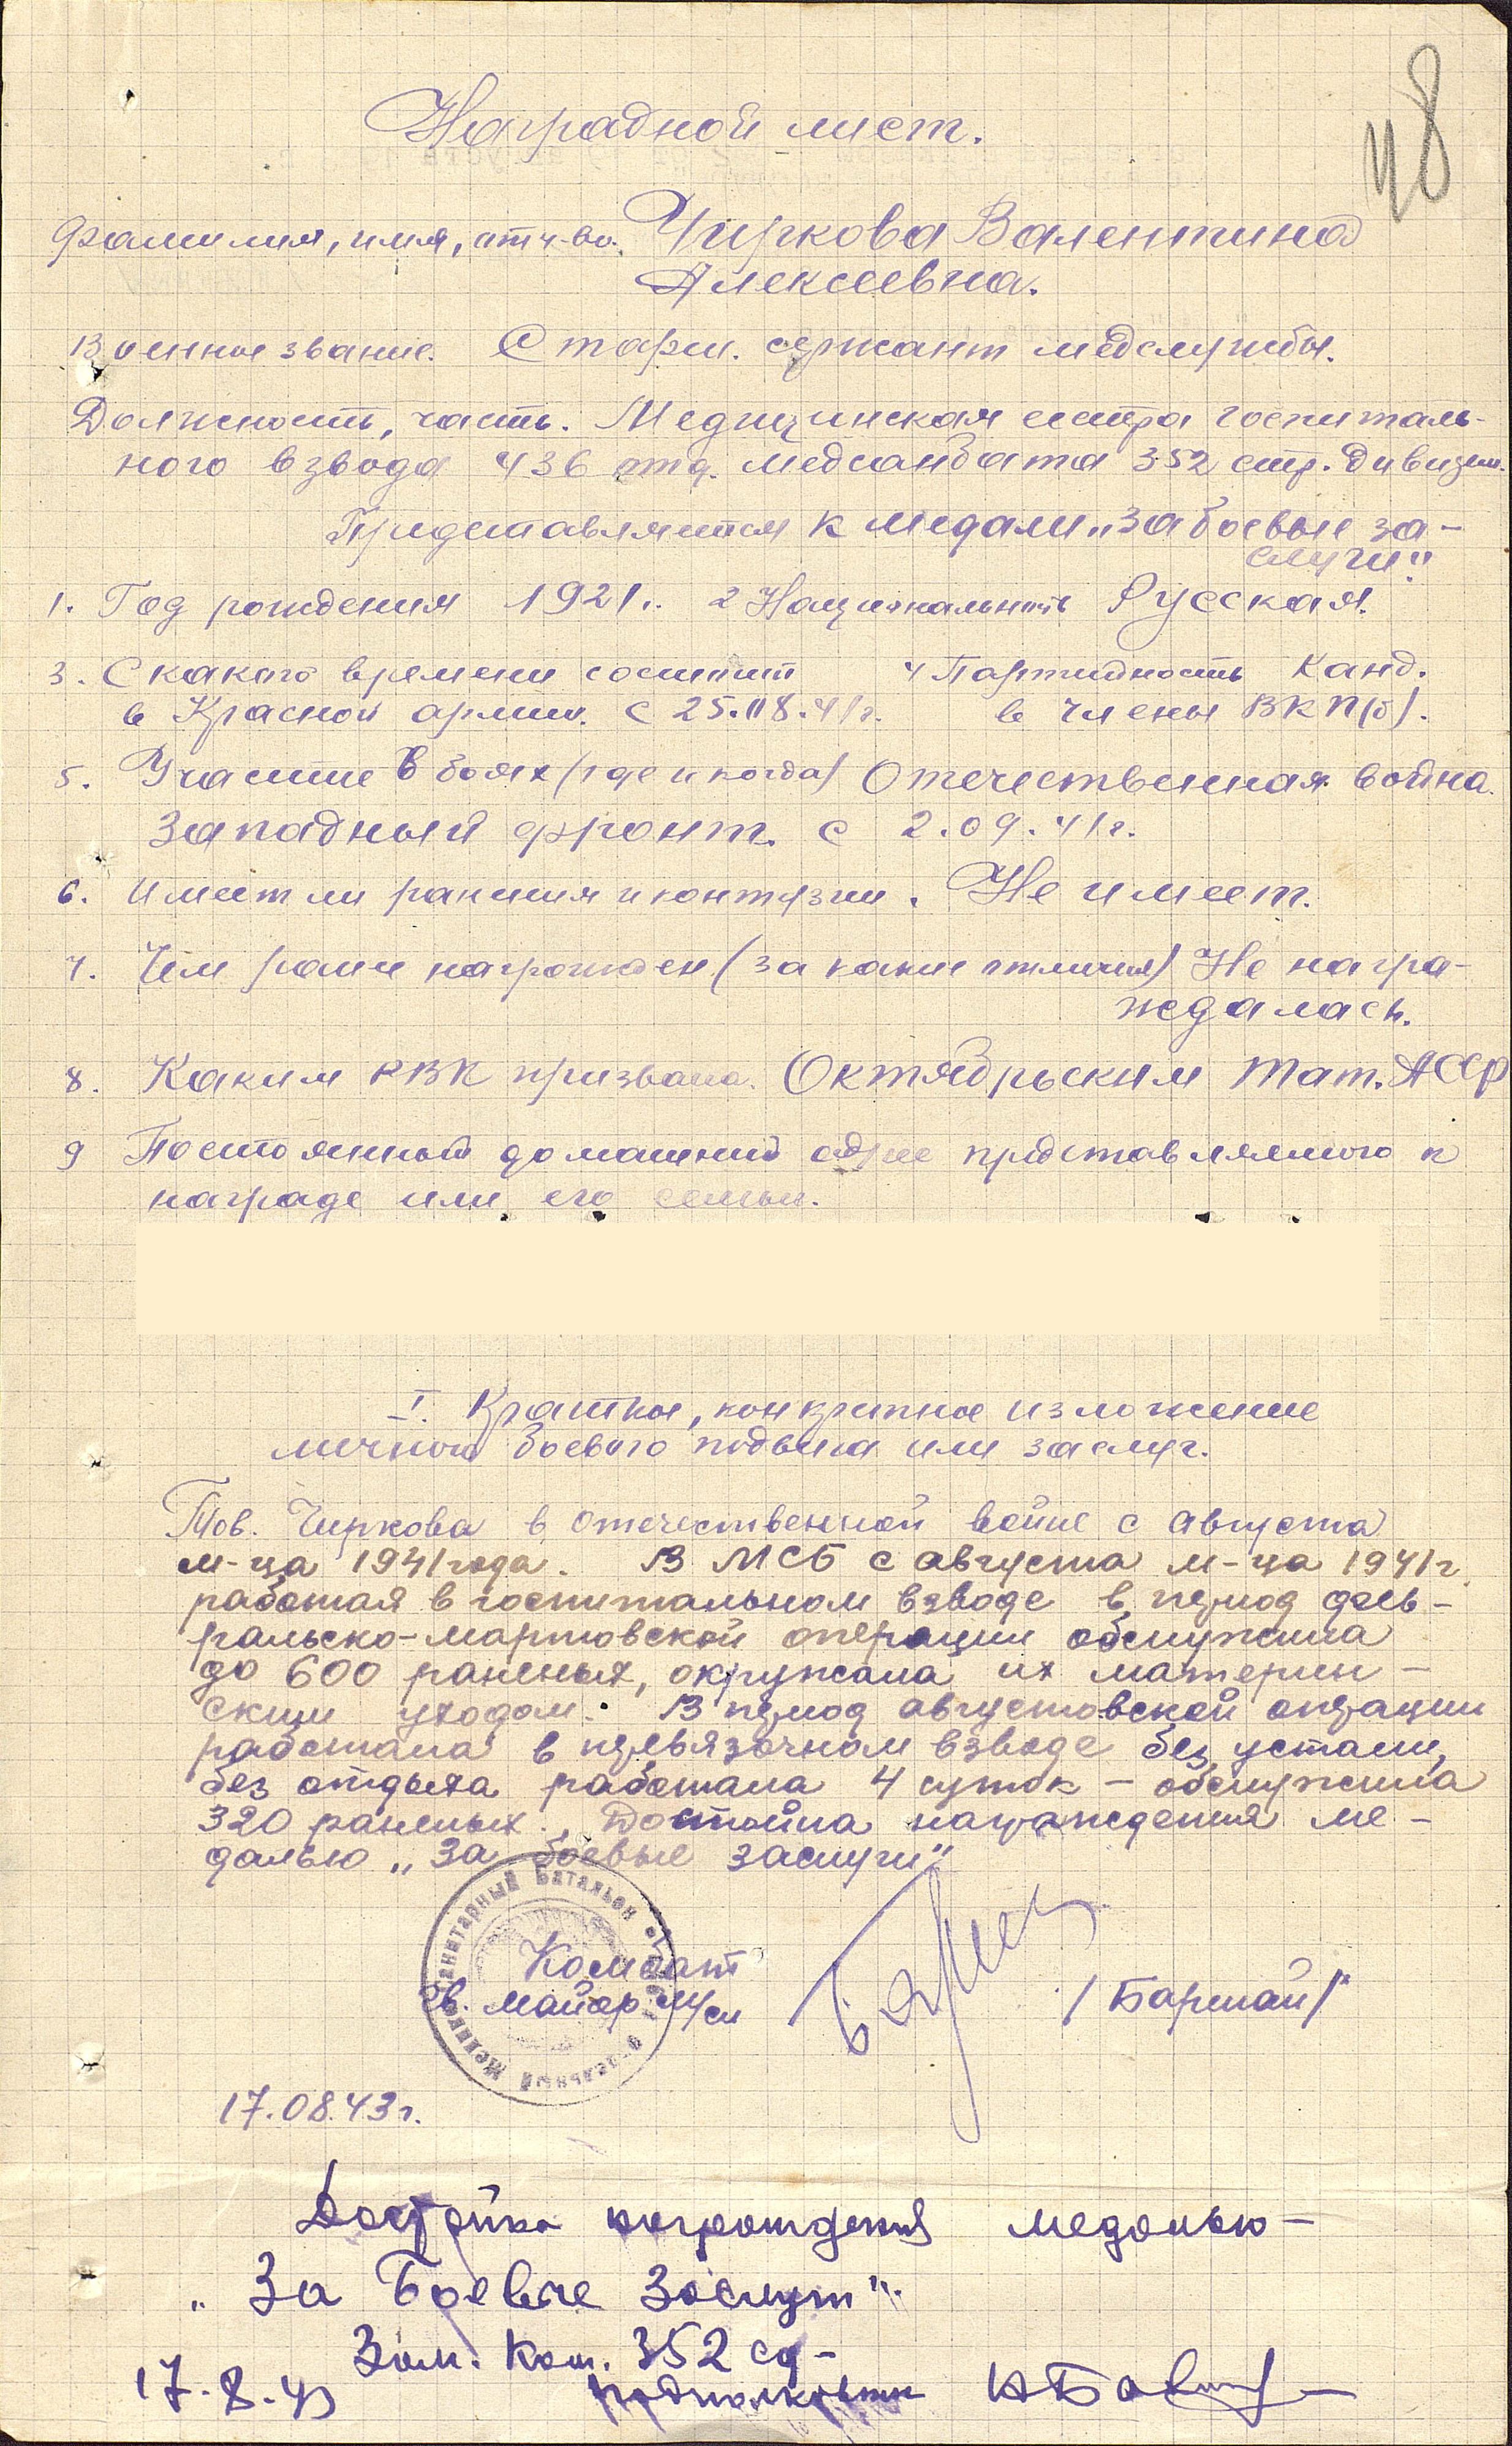 48
Наградной лист.
Фамилия, имя, отч-во. Чиркова Валентина
Алексеевна.
Военное звание. Старш. сержант медслужбы.
Должность, часть. Медицинская сестра госпиталь-
ного взвода 436 отд. медсанбата 352 стр. дивизии.
Представляется к медали „За боевые за-
слуги".
1. Год рождения 1921. 2 Национальность Русская.
3. С какого времени состоит 4 Партийность Канд.
в Красной армии. С 25.08.41г. в члены ВКП(б).
5. Участие в боях (где и когда) Отечественная война.
Западный фронт. с 2.09.41г.
6. Имеет ли ранения и контузии. Не имеет.
7. Чем ранее награжден (за какие отличия) Не награ-
ждалась.
8. Каким РВК призвана. Октябрьским Тат. АССР
9 Постоянный домашний адрес представляемого к
награде или его семьи.
I. Краткое, конкретное изложение
личного боевого подвига или заслуг.
Тов. Чиркова в отечественной войне с августа
м-ца 1941 года. В МСБ с августа м-ца 1941г.
работая в госпитальном взводе в период фев-
ральско-мартовской операции обслужила
до 600 раненых, окружала их материн-
ским уходом. В период августовской операции
работала в перевязочном взводе без устали,
без отдыха работала 4 суток – обслужила
320 раненых. Достойна награждения ме-
далью „За боевые заслуги"
Медико Санитарный Батальон
Отдельный
Комбат
в. майор м/сл /Барман/
17.08.43г.
Достойна награждения медалью –
„За Боевые Заслуги".
Зам. Ком. 352 сд –
17.8.43 подполковник